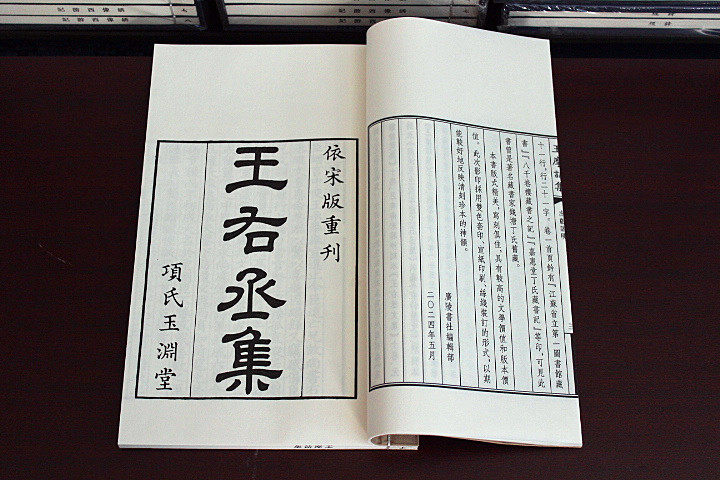 依宋版重刊
王右丞集
項氏玉淵堂
十一行，行二十一字。卷一首頁鈐有『江蘇省立第一圖書館藏
書』『八千卷樓藏書之記』『嘉惠堂丁氏藏書記』等印，可見此
書曾是著名藏書家錢塘丁氏舊藏。
本書版式精美，寫刻俱佳，具有較高的文學價值和版本價
值。此次影印採用雙色套印、宣紙印刷、綫裝訂的形式，以期
能較好地反映清刻珍本的神韻。
廣陵書社編輯部
二〇二四年五月
繡像西遊記
七
繡像西遊記
八